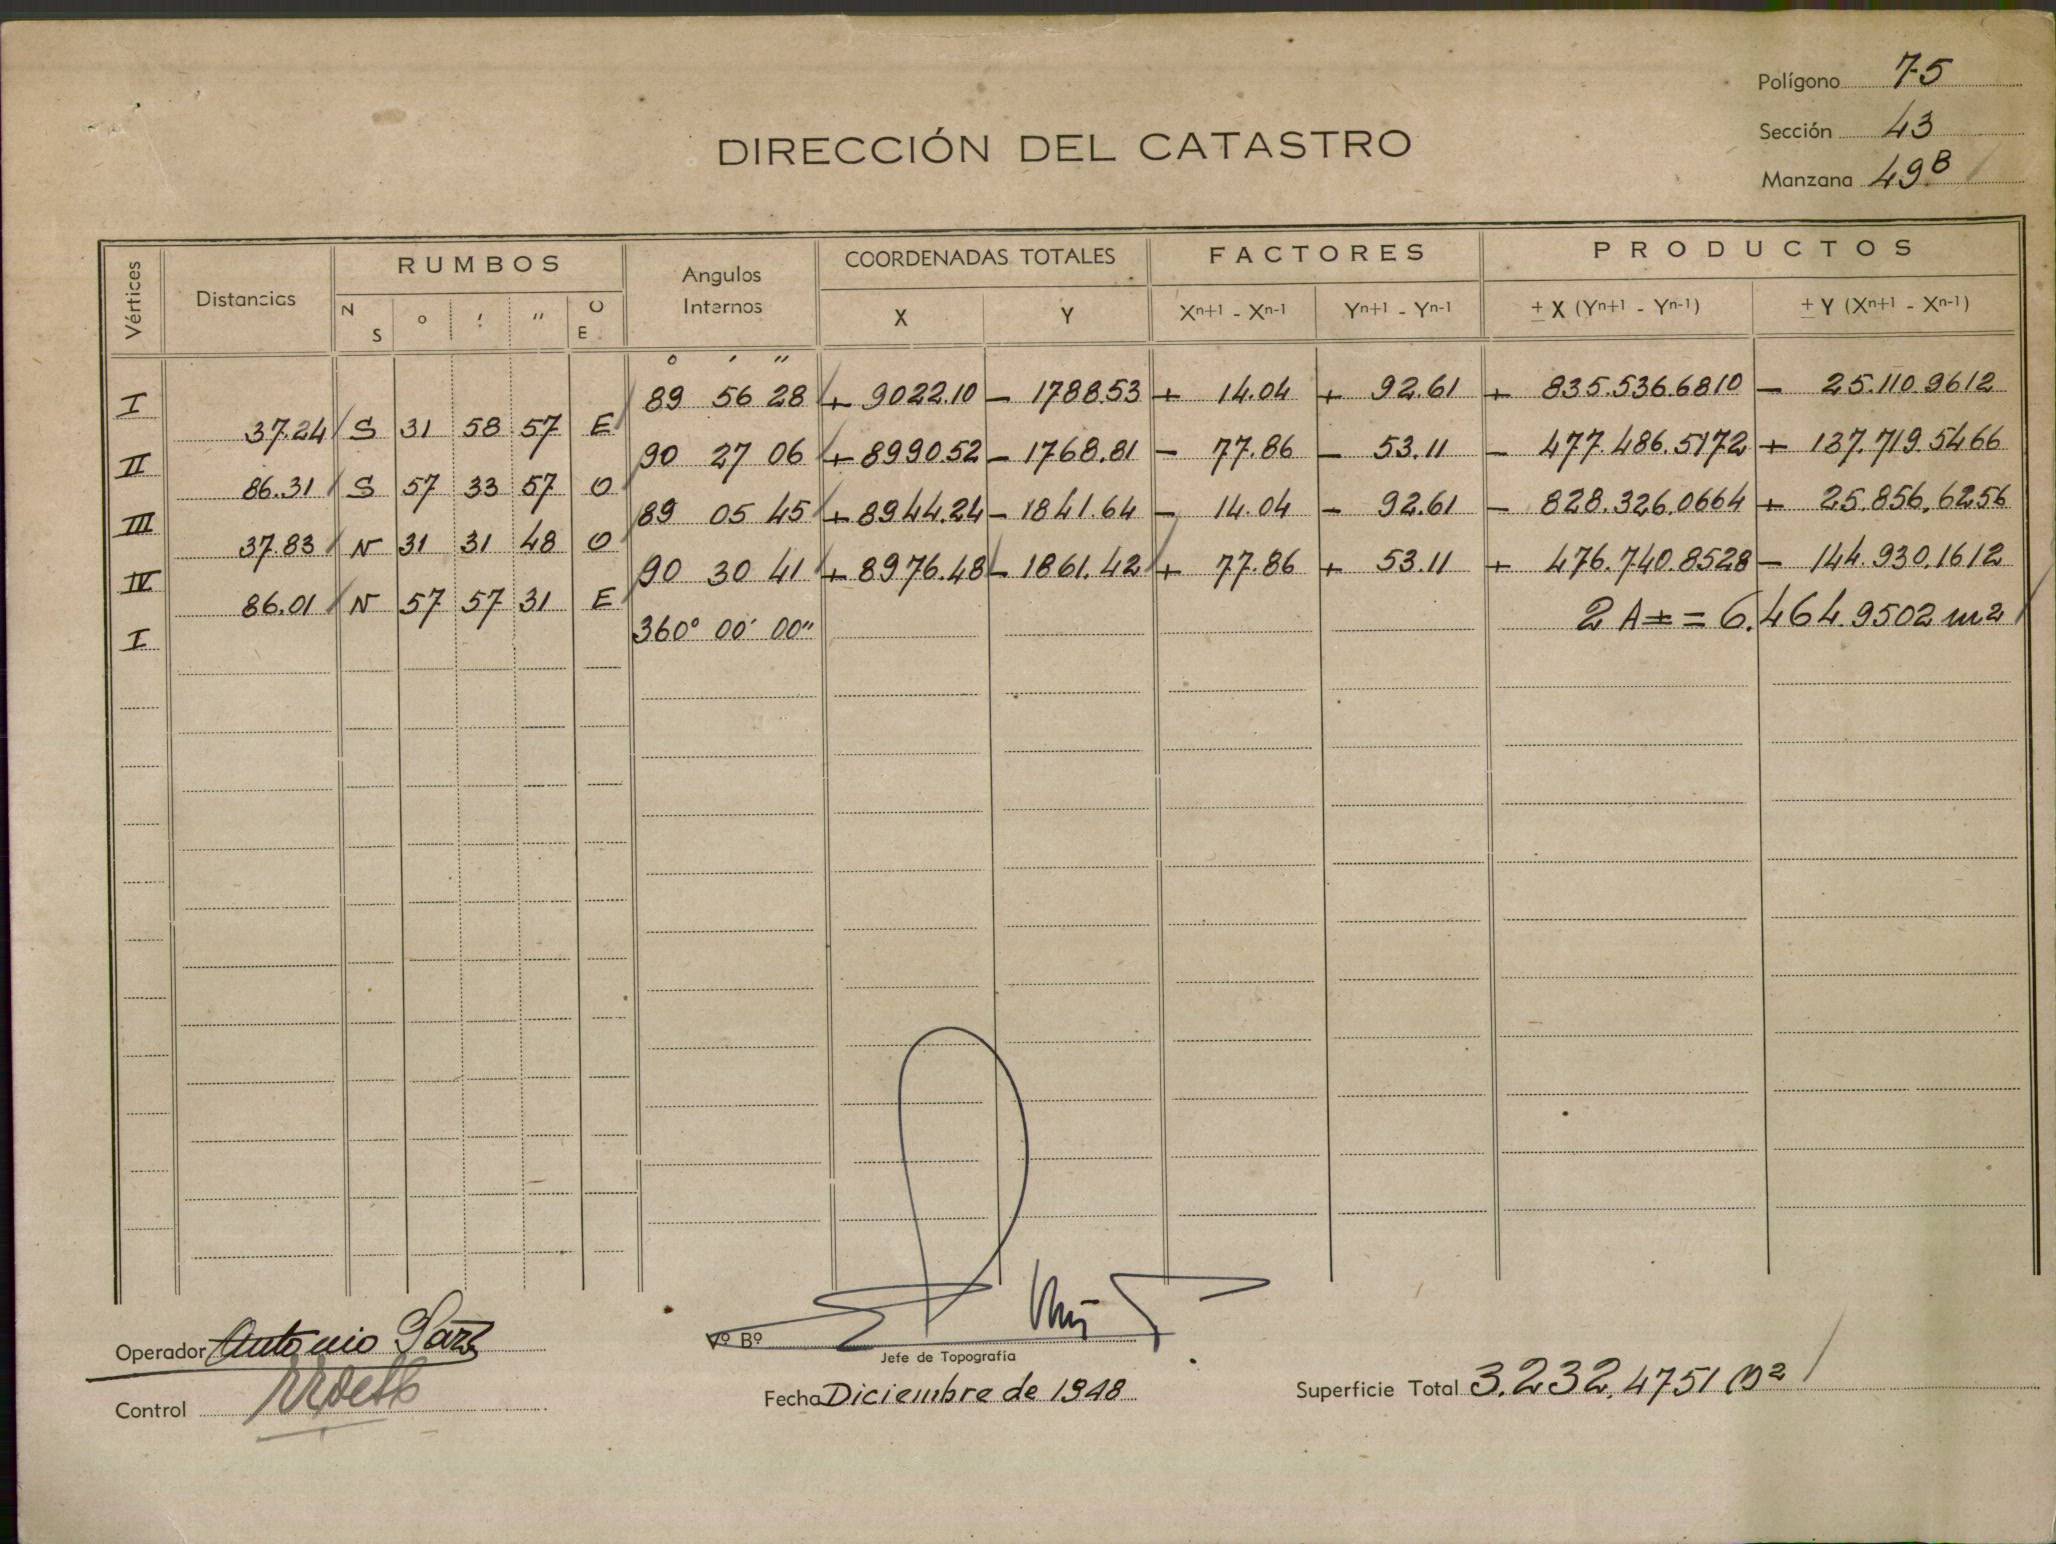 Polígono 75
Sección 43
Manzana 49B
DIRECCIÓN DEL CATASTRO
Vértices Distancias RUMBOS Angulos Internos COORDENADAS TOTALES FACTORES PRODUCTOS
N S ° ' " O E X Y Xn+1 - Xn-1 Yn+1 - Yn-1 ± X (Yn+1 - Yn-1) ± Y (Xn+1 - Xn-1)
° ' "
I 89 56 28 + 9022.10 - 1788.53 + 14.04 + 92.61 + 835.536.6810 - 25.110.9612
37.24 S 31 58 57 E
II 90 27 06 + 8990.52 - 1768.81 - 77.86 - 53.11 - 477.486.5172 + 137.719.5466
86.31 S 57 33 57 O
III 89 05 45 + 8944.24 - 1841.64 - 14.04 - 92.61 - 828.326.0664 + 25.856.6256
37.83 N 31 31 48 O
IV 90 30 41 + 8976.48 - 1861.42 + 77.86 + 53.11 + 476.740.8528 - 144.930.1612
86.01 N 57 57 31 E
I 360° 00' 00" 2 A ± = 6.464.9502 m2
Operador Antonio
Control
Vº Bº
Jefe de Topografía
Fecha Diciembre de 1948
Superficie Total 3.232,4751 m2